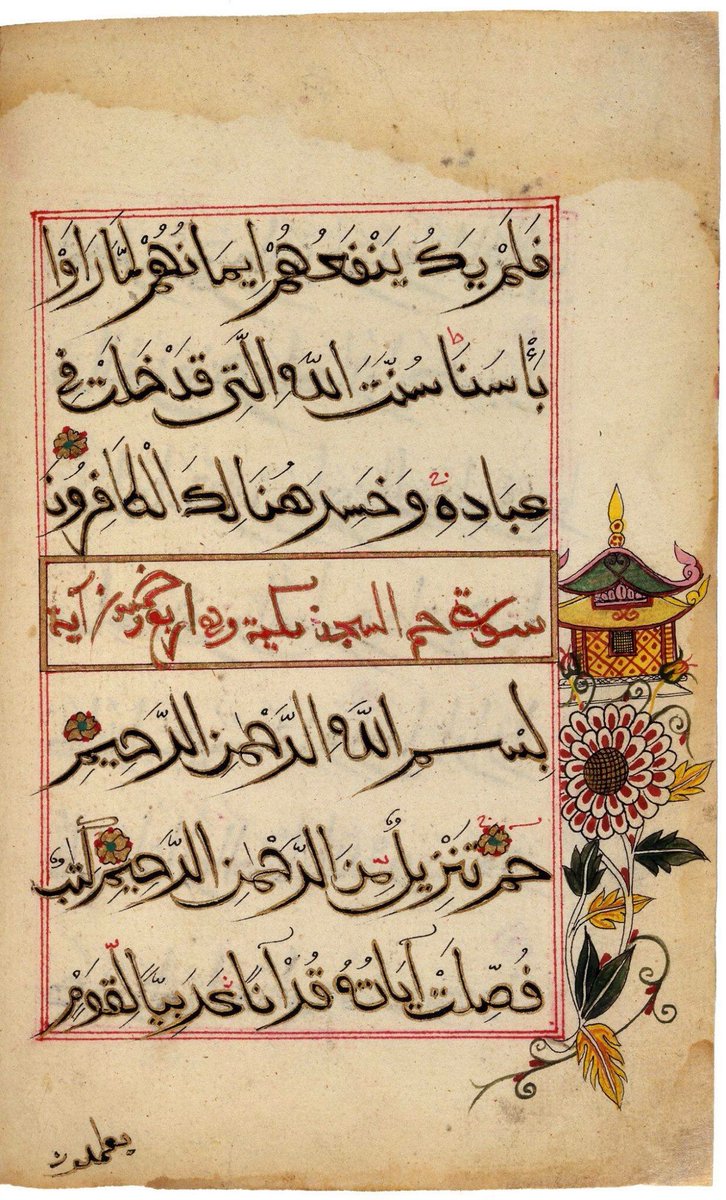 فَلَمْ يَكُ يَنْفَعُهُمْ اِيمَانُهُمْ لَمَّا رَاَوْا
بَأْسَنَا ط سُنَّتَ اللّٰهِ الَّتِى قَدْ خَلَتْ فِى
عِبَادِهٖ ج وَخَسِرَ هُنَالِكَ الْكَافِرُونَ
سورة حم السجدة مكية وهى اربع وخمسون آية
بِسْمِ اللّٰهِ الرَّحْمٰنِ الرَّحِيمِ
حٰم ج تَنْزِيلٌ مِّنَ الرَّحْمٰنِ الرَّحِيمِ كِتٰبٌ
فُصِّلَتْ آيَاتُهُ قُرْآنًا عَرَبِيًّا لِّقَوْمٍ
يعلمون